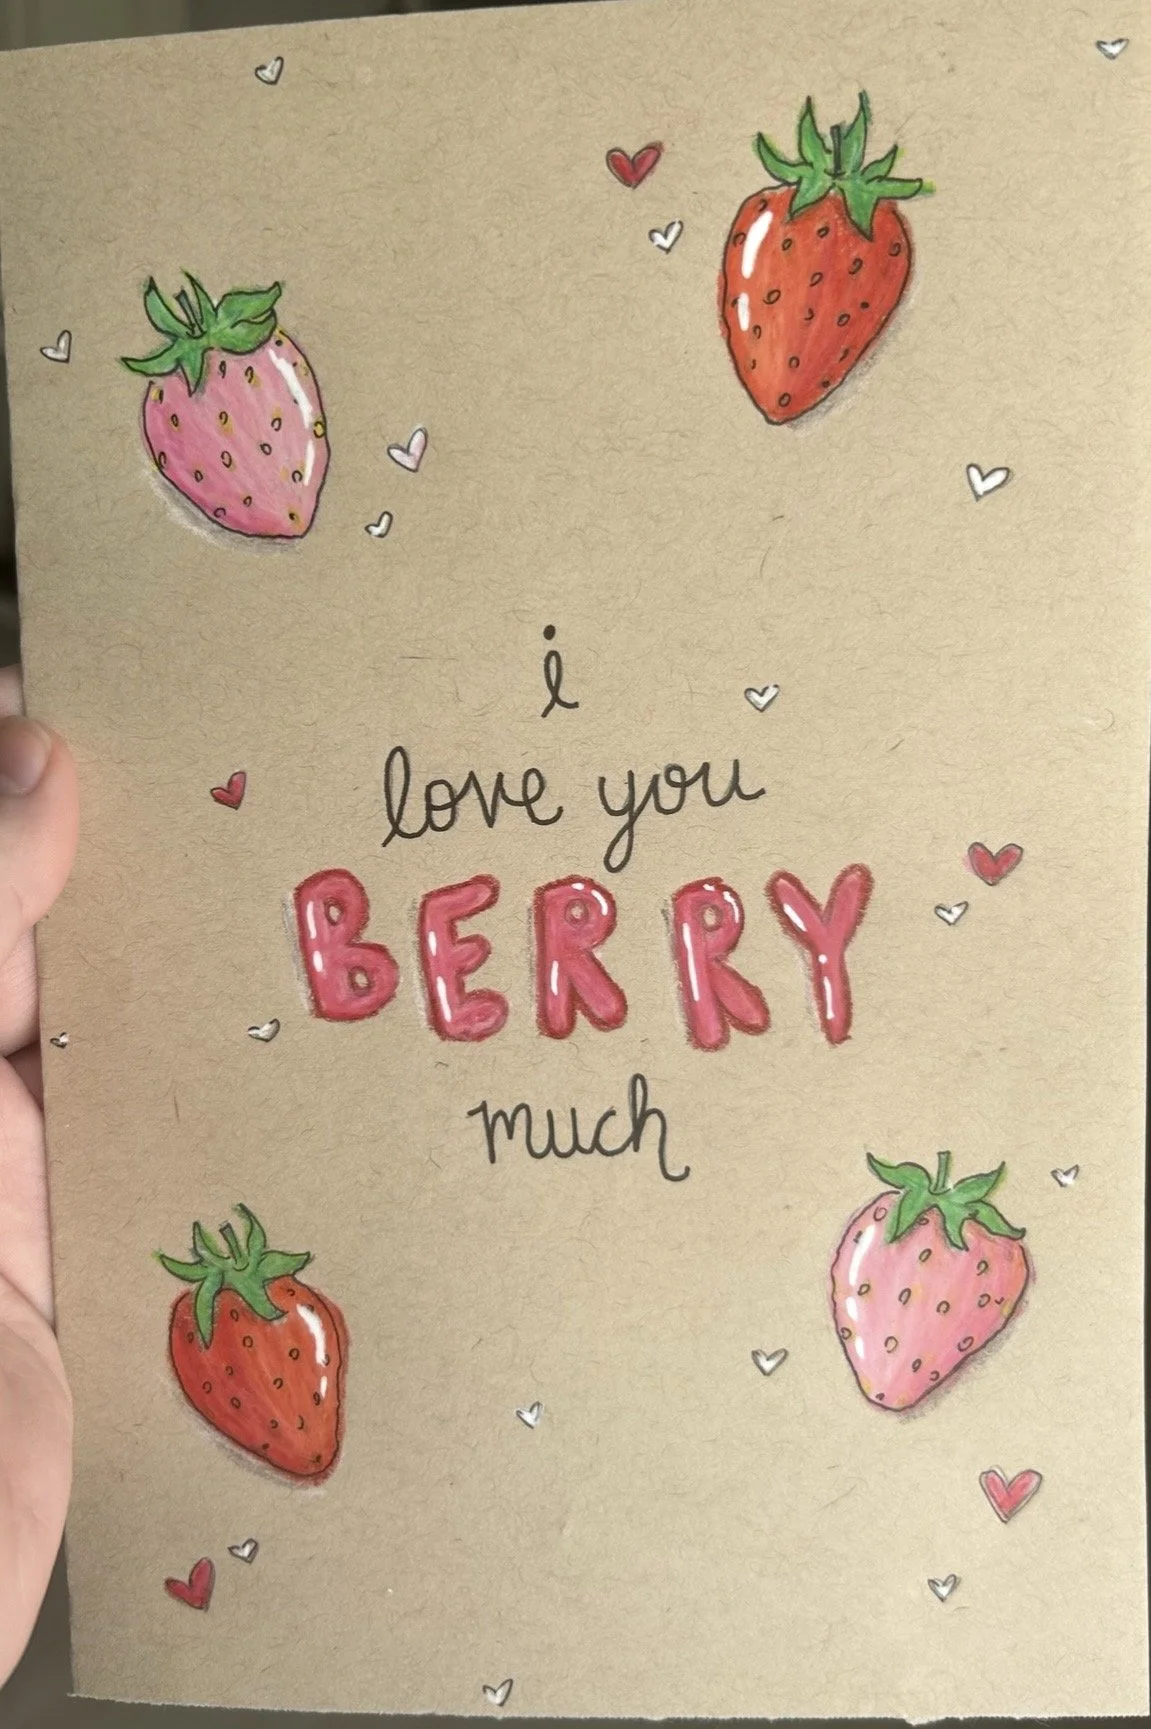 i
love you
BERRY
much